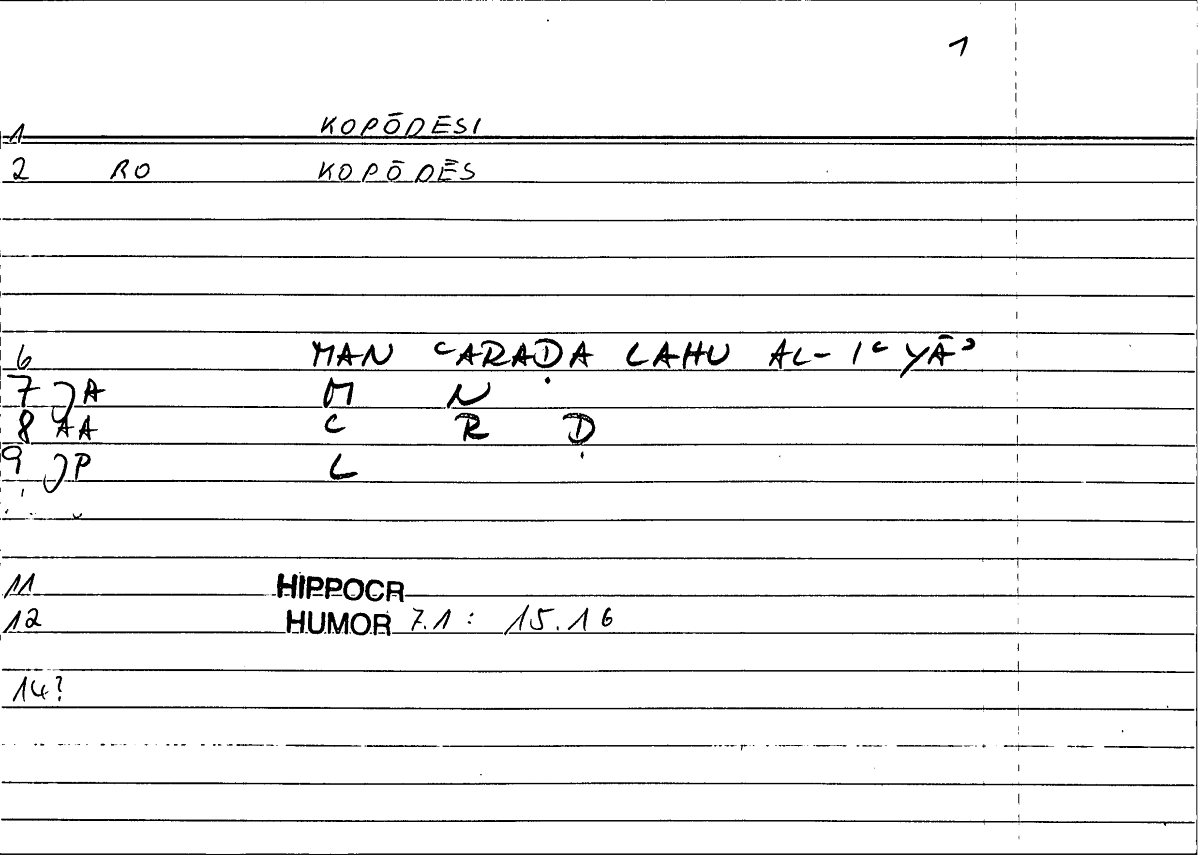 1
1 KOPŌDESI
2 RO KOPŌDĒS
6 MAN ʿARAḌA LAHU AL-IʿYĀʾ
7 JA M N
8 AA ʿ R Ḍ
9 JP L
11 HIPPOCR
12 HUMOR 7.1 : 15.16
14?